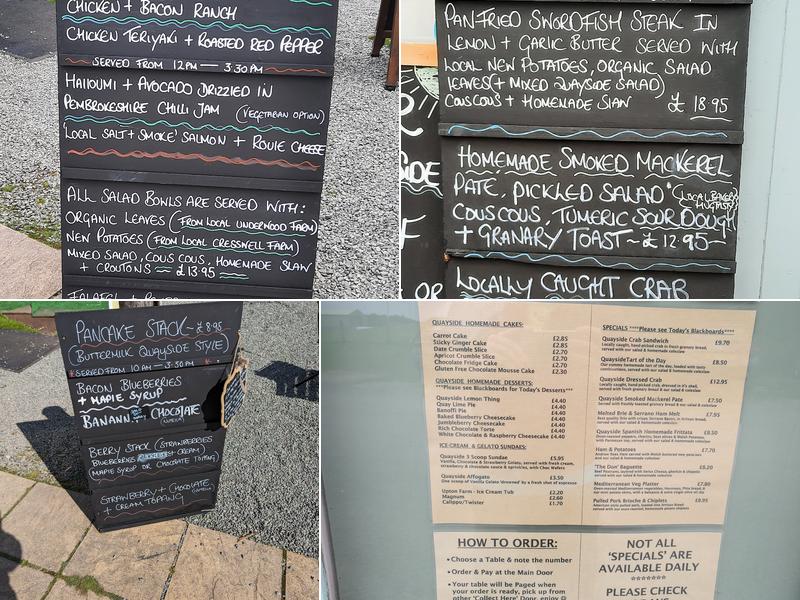 CHICKEN + BACON RANCH
CHICKEN TERIYAKI + ROASTED RED PEPPER
SERVED FROM 12PM — 3.30PM
HALLOUMI + AVOCADO DRIZZLED IN
PEMBROKESHIRE CHILLI JAM (VEGETARIAN OPTION)
'LOCAL SALT + SMOKE' SALMON + ROUIE CHEESE
ALL SALAD BOWLS ARE SERVED WITH:
ORGANIC LEAVES (FROM LOCAL UNDERWOOD FARM)
NEW POTATOES (FROM LOCAL CRESSWELL FARM)
MIXED SALAD, COUS COUS, HOMEMADE SLAW
+ CROUTONS — £13.95
PAN FRIED SWORDFISH STEAK IN
LEMON + GARLIC BUTTER SERVED WITH
LOCAL NEW POTATOES, ORGANIC SALAD
LEAVES (+ MIXED QUAYSIDE SALAD)
COUSCOUS + HOMEMADE SLAW £18.95
HOMEMADE SMOKED MACKEREL
PATE, PICKLED SALAD (LOCAL BAKERY
COUSCOUS, TUMERIC SOURDOUGH
+ GRANARY TOAST ~ £12.95
LOCALLY CAUGHT CRAB
PANCAKE STACK ~ £8.95
(BUTTERMILK QUAYSIDE STYLE)
SERVED FROM 10AM - 3.30PM
BACON BLUEBERRIES
+ MAPLE SYRUP
CHOCOLATE
BERRY STACK (STRAWBERRIES
BLUEBERRIES + CREAM)
MAPLE SYRUP OR CHOCOLATE TOPPING
STRAWBERRY + CHOCOLATE
+ CREAM TOPPING
QUAYSIDE HOMEMADE CAKES:
Carrot Cake £2.85
Sticky Ginger Cake £2.85
Date Crumble Slice £2.70
Apricot Crumble Slice £2.70
Chocolate Fridge Cake £2.70
Gluten Free Chocolate Mousse Cake £2.30
QUAYSIDE HOMEMADE DESSERTS:
***Please see Blackboards for Today's Desserts***
Quayside Lemon Thing £4.40
Quay Lime Pie £4.40
Banoffi Pie £4.40
Baked Blueberry Cheesecake £4.40
Jumbleberry Cheesecake £4.40
Rich Chocolate Torte £4.40
White Chocolate & Raspberry Cheesecake £4.40
ICE-CREAM & GELATO SUNDAES:
Quayside 3 Scoop Sundae £5.95
Vanilla, Chocolate & Strawberry Gelato, served with fresh cream,
strawberry & chocolate sauce & sprinkles, with Choc Wafers
Quayside Affogato £3.50
One scoop of Vanilla Gelato 'drowned' by a fresh shot of espresso
Upton Farm - Ice Cream Tub £2.20
Magnum £2.60
Calippo/Twister £1.70
SPECIALS ****Please see Today's Blackboards****
Quayside Crab Sandwich £9.70
Locally caught, hand-picked crab in fresh granary bread,
served with our salad & homemade coleslaw
Quayside Tart of the Day £8.50
Quayside Dressed Crab £12.95
Quayside Smoked Mackerel Pate £7.50
Melted Brie & Serrano Ham Melt £7.95
Quayside Spanish Homemade Frittata £8.50
Ham & Potatoes £7.70
'The Don' Baguette £8.20
Mediterranean Veg Platter £7.80
Pulled Pork Brioche & Chiplets £8.95
HOW TO ORDER:
• Choose a Table & note the number
• Order & Pay at the Main Door
• Your table will be Paged when
your order is ready, pick up from
other 'Collect Here' Door, enjoy
NOT ALL
'SPECIALS' ARE
AVAILABLE DAILY
*******
PLEASE CHECK